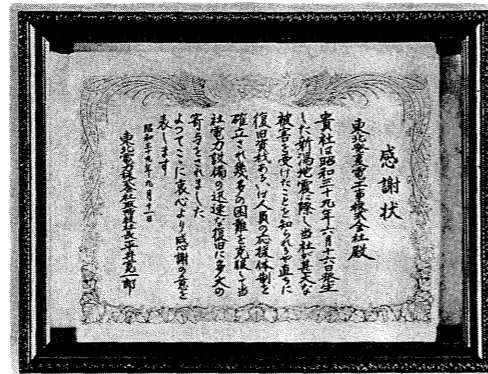 感謝状
東北発変電工事株式会社殿
貴社は昭和三十九年六月十六日発生
した新潟地震に際し当社が甚大な
被害を受けたことを知られるや直ちに
復旧資材あるいは人員の応援体制を
確立され幾多の困難を克服して当
社電力設備の迅速な復旧に多大の
寄与をされました
よつてここに衷心より感謝の意を
表します
昭和三十九年九月十一日
東北電力株式会社取締役社長平井寛一郎